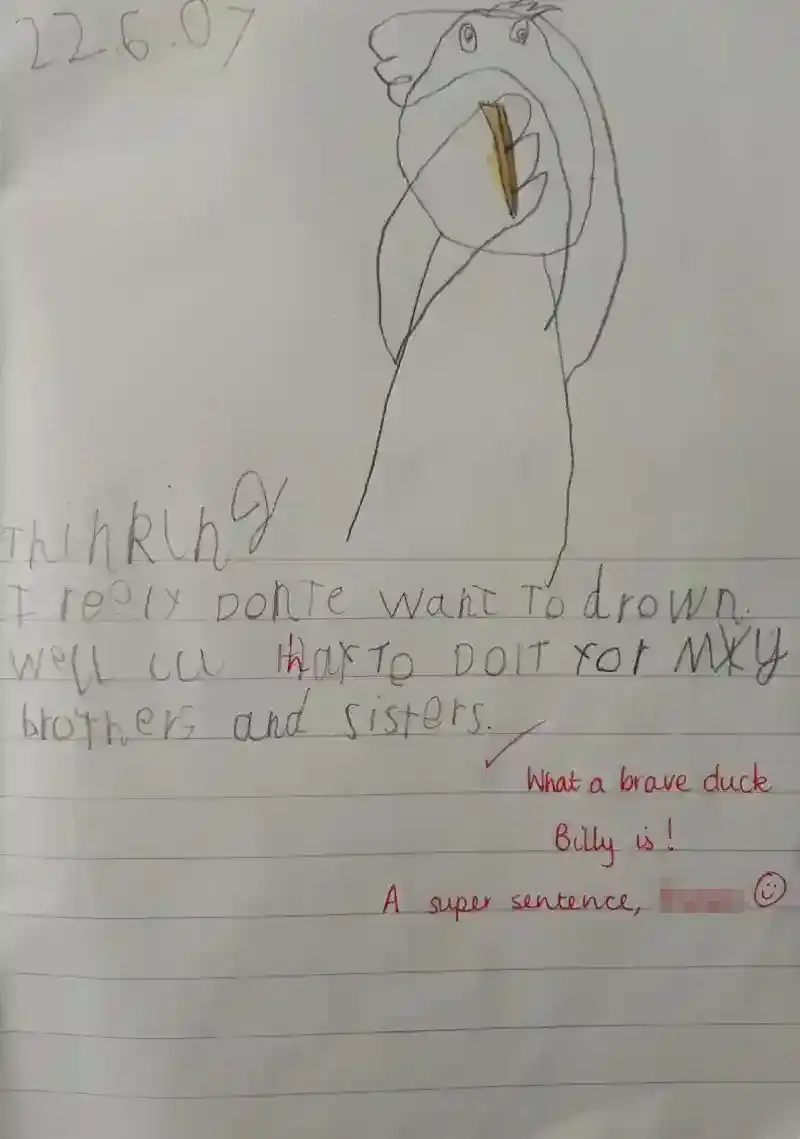 22.6.07
Thinking
I reely Donte want To drown.
well ill haf To Do it for my
brothers and sisters.
What a brave duck
Billy is!
A super sentence,